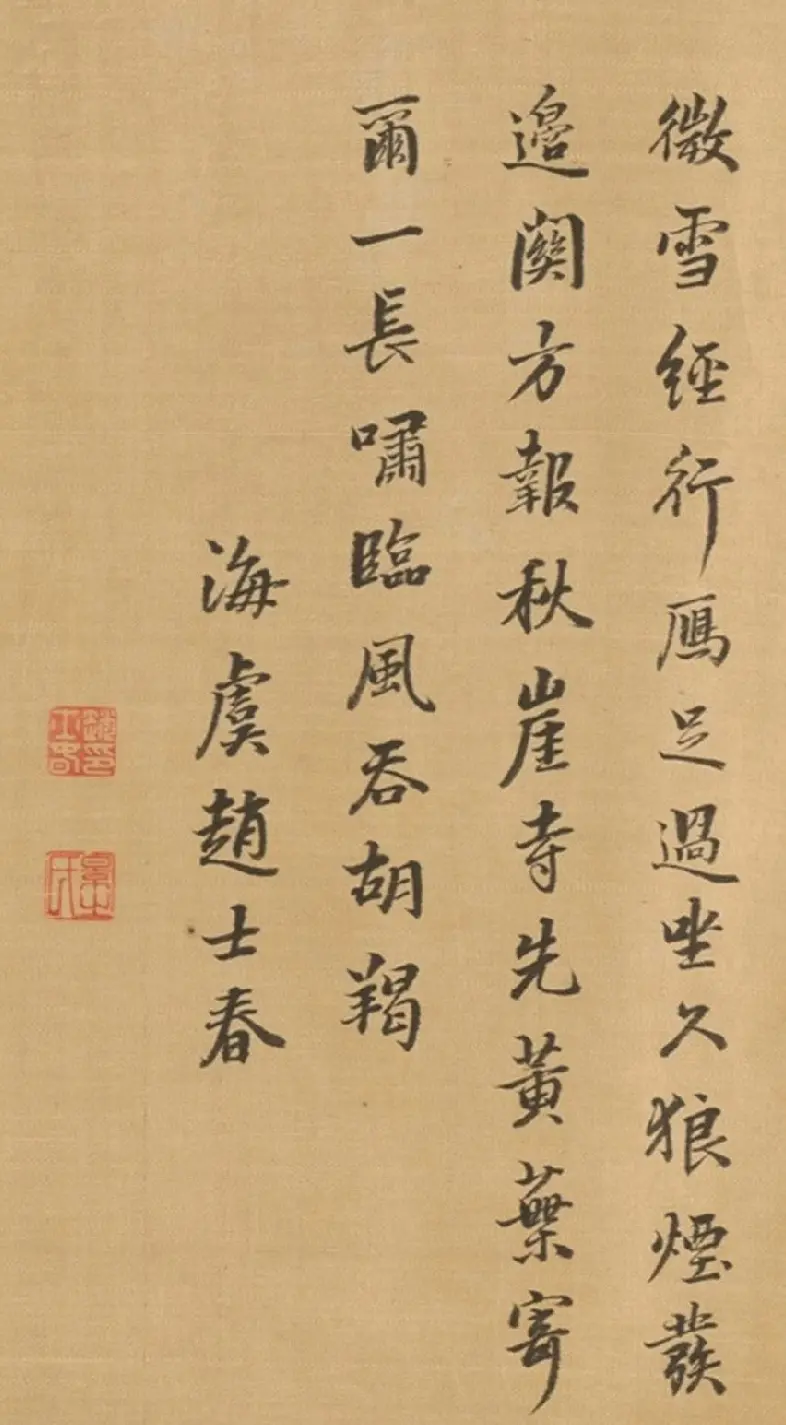 微雪經行鴈足過坐久狼煙發
邉關方報秋崖寺先黃葉寄
爾一長嘯臨風吞胡羯
海虞趙士春